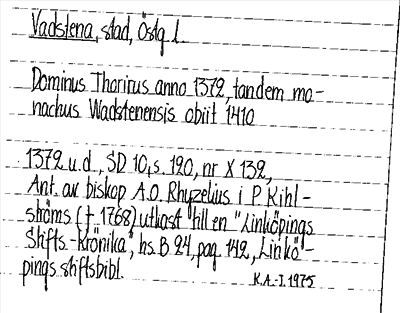 Vadstena, stad, Östg l.
Dominus Thorirus anno 1372, tandem mo-
nachus Wadstenensis obiit 1410
1372 u.d., SD 10, s. 120, nr X 132,
Ant. av biskop A.O. Rhyzelius i P Kihl-
ströms († 1768) utkast till en "Linköpings
Stifts-Krönika", hs. B 24, pag 142, Linkö-
pings stiftsbibl.
K.A.-I. 1975